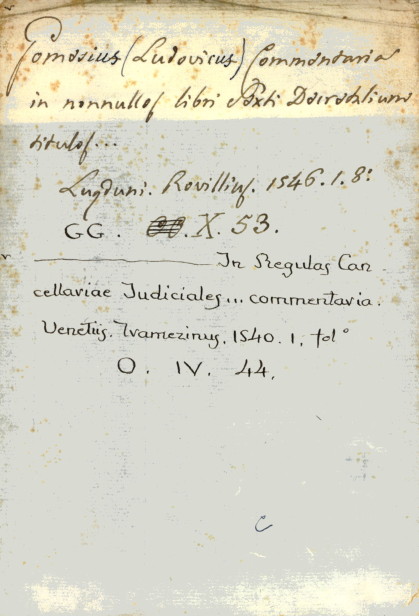 Gomesius (Ludovicus) Commentaria
in nonnullos libri Sexti Decretalium
titulos...
Lugduni. Rovillius. 1546. 1. 8:
GG. X. 53.
In Regulas Can
cellariae Judiciales... commentaria.
Venetiis. Tramezinus. 1540. 1. fol°
O. IV. 44.